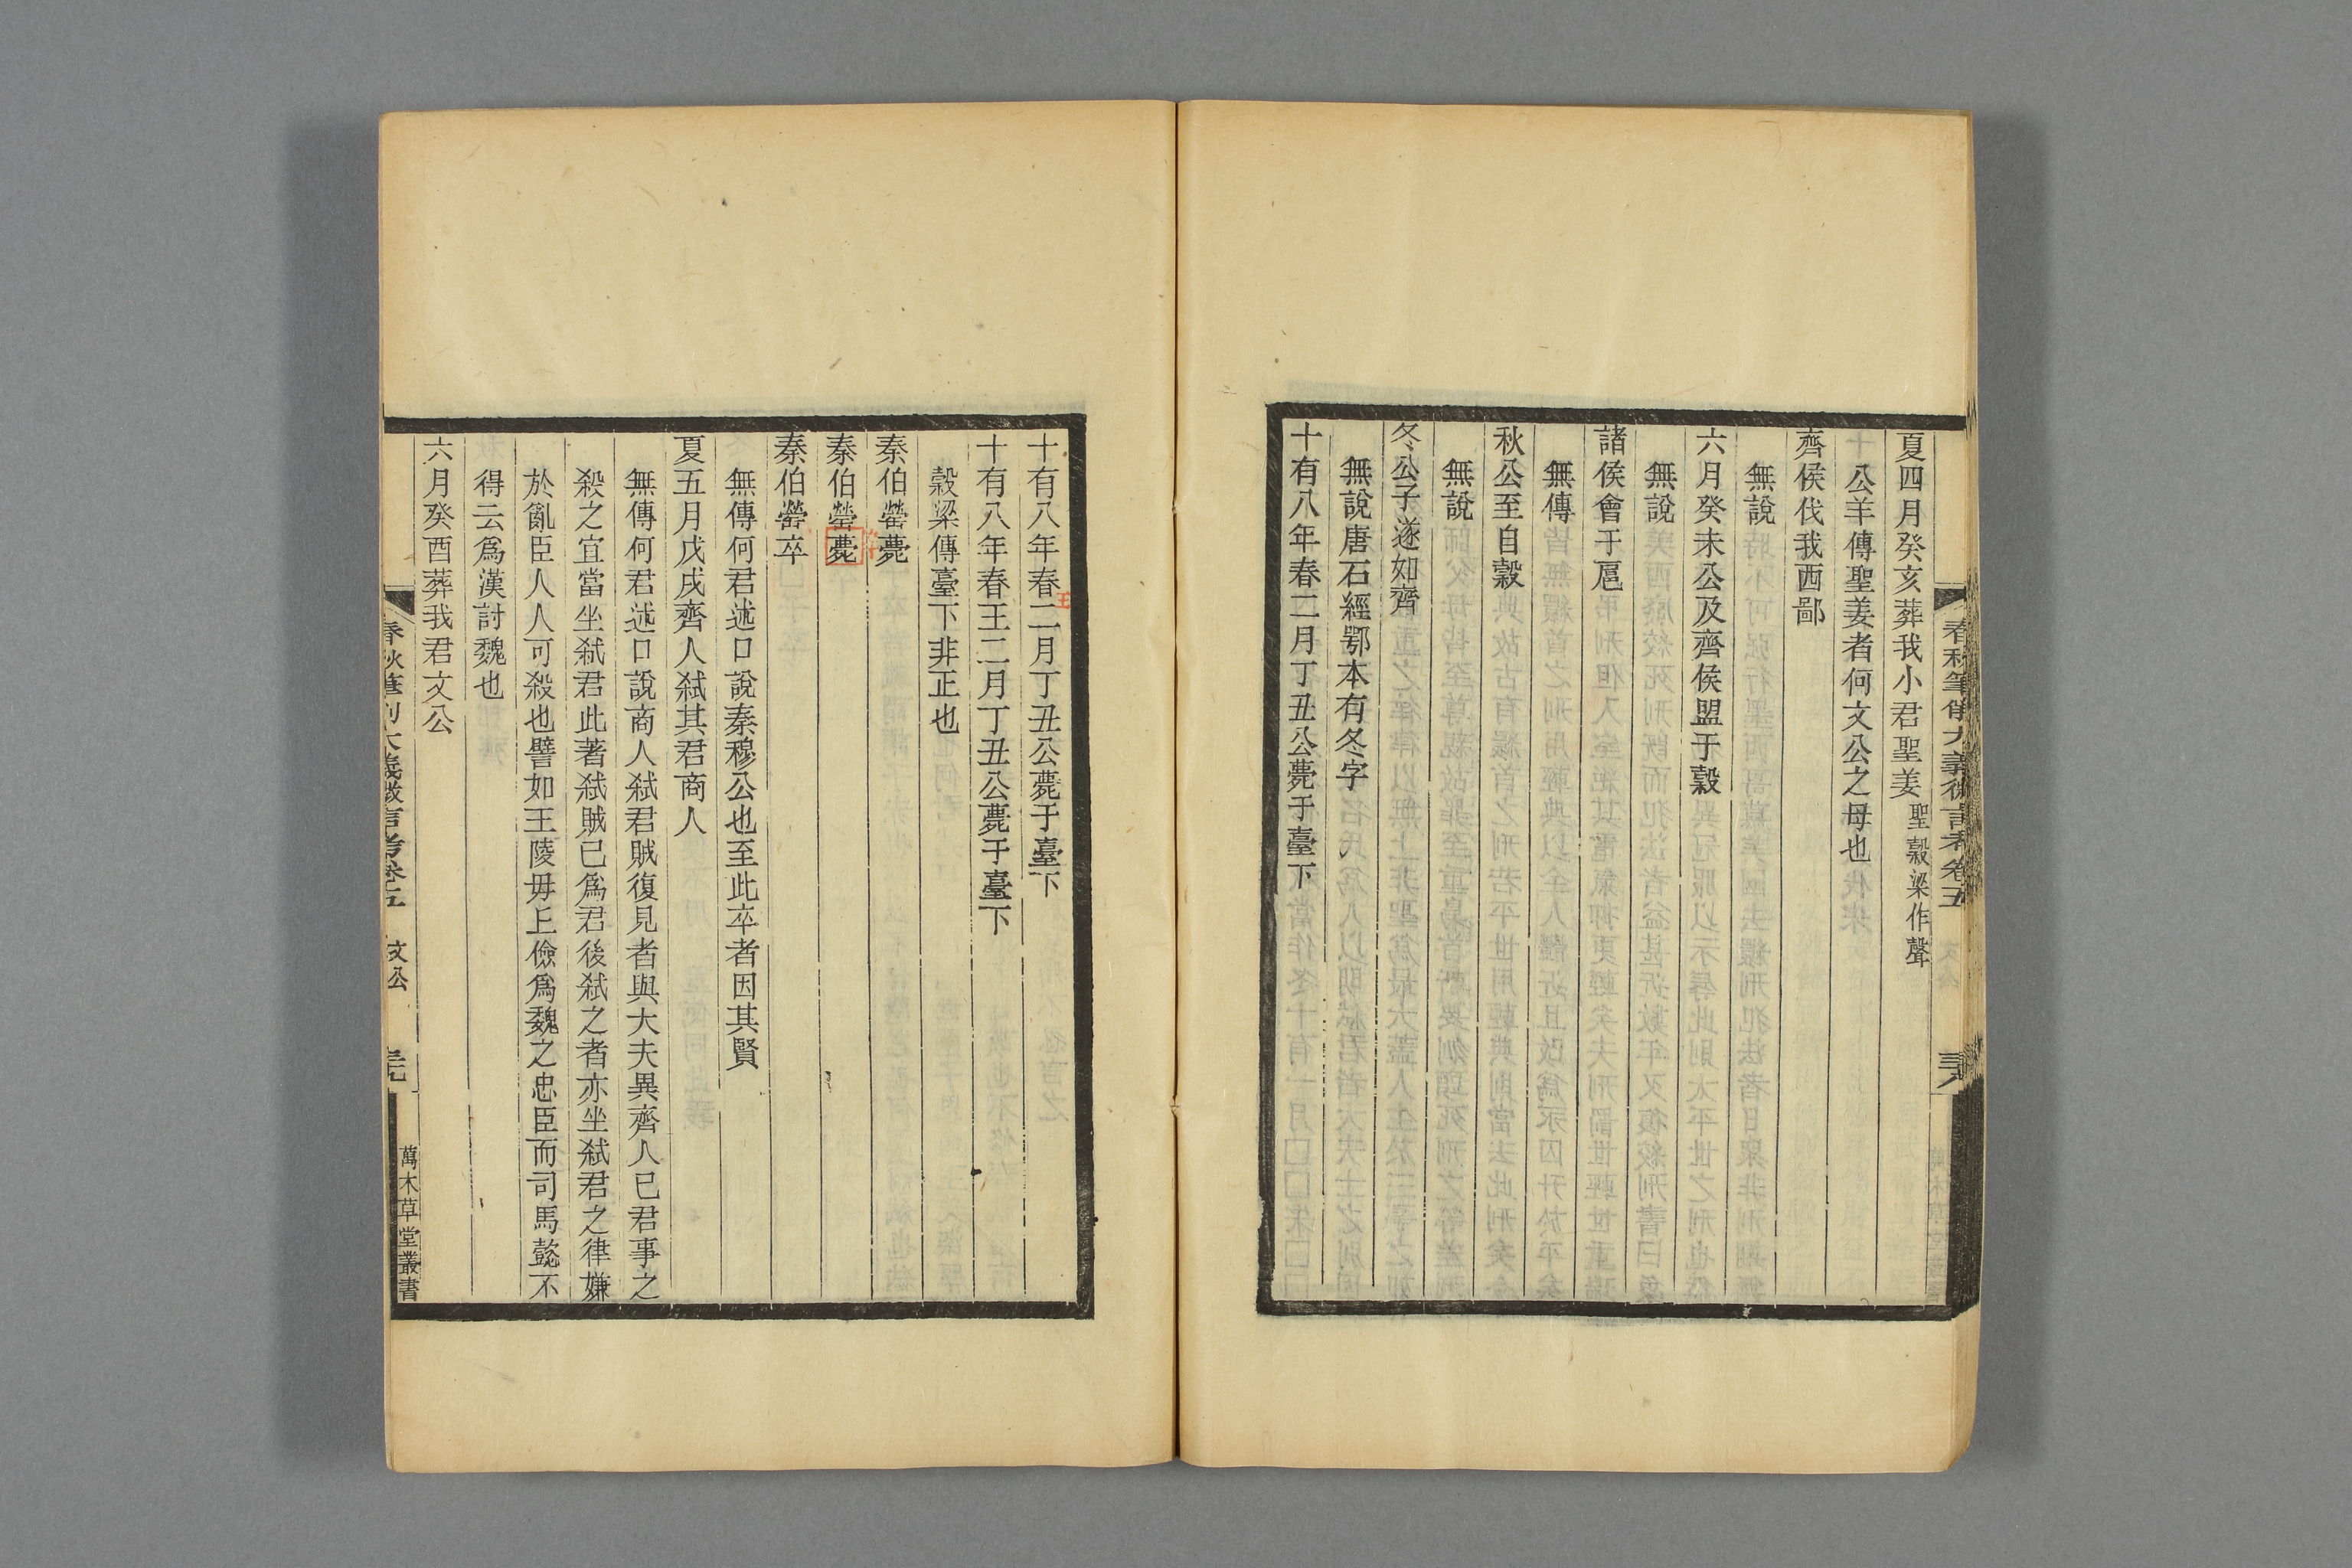 春秋筆削大義微言考卷五
夏四月癸亥葬我小君聖姜聖穀梁作聲
公羊傳聖姜者何文公之母也
齊侯伐我西鄙
無說
六月癸未公及齊侯盟于穀
無說
諸侯會于扈
無傳
秋公至自穀
無說
冬公子遂如齊
無說唐石經鄂本有冬字
十有八年春二月丁丑公薨于臺下
十有八年春二月丁丑公薨于臺下
王
十有八年春王二月丁丑公薨于臺下
穀梁傳臺下非正也
秦伯罃薨
卒
秦伯罃薨
秦伯罃卒
無傳何君述口說秦穆公也至此卒者因其賢
夏五月戊戌齊人弒其君商人
無傳何君述口說商人弒君賊復見者與大夫異齊人已君事之
殺之宜當坐弒君此著弒賊已爲君後弒之者亦坐弒君之律嫌
於亂臣人人可殺也譬如王陵毋丘儉爲魏之忠臣而司馬懿不
得云爲漢討魏也
六月癸酉葬我君文公
春秋筆削大義微言考卷五
文公
萬木草堂叢書